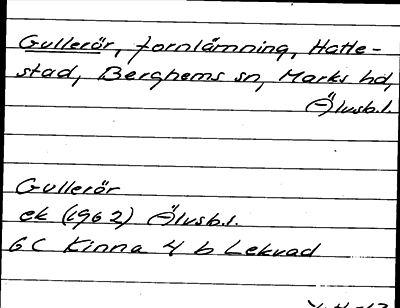 Gullerör, fornlämning, Hatte-
stad, Berghems sn, Marks hd,
Älvsb.l.
Gullerör
ek (1962) Älvsb.l.
6C Kinna 4 b Lekvad